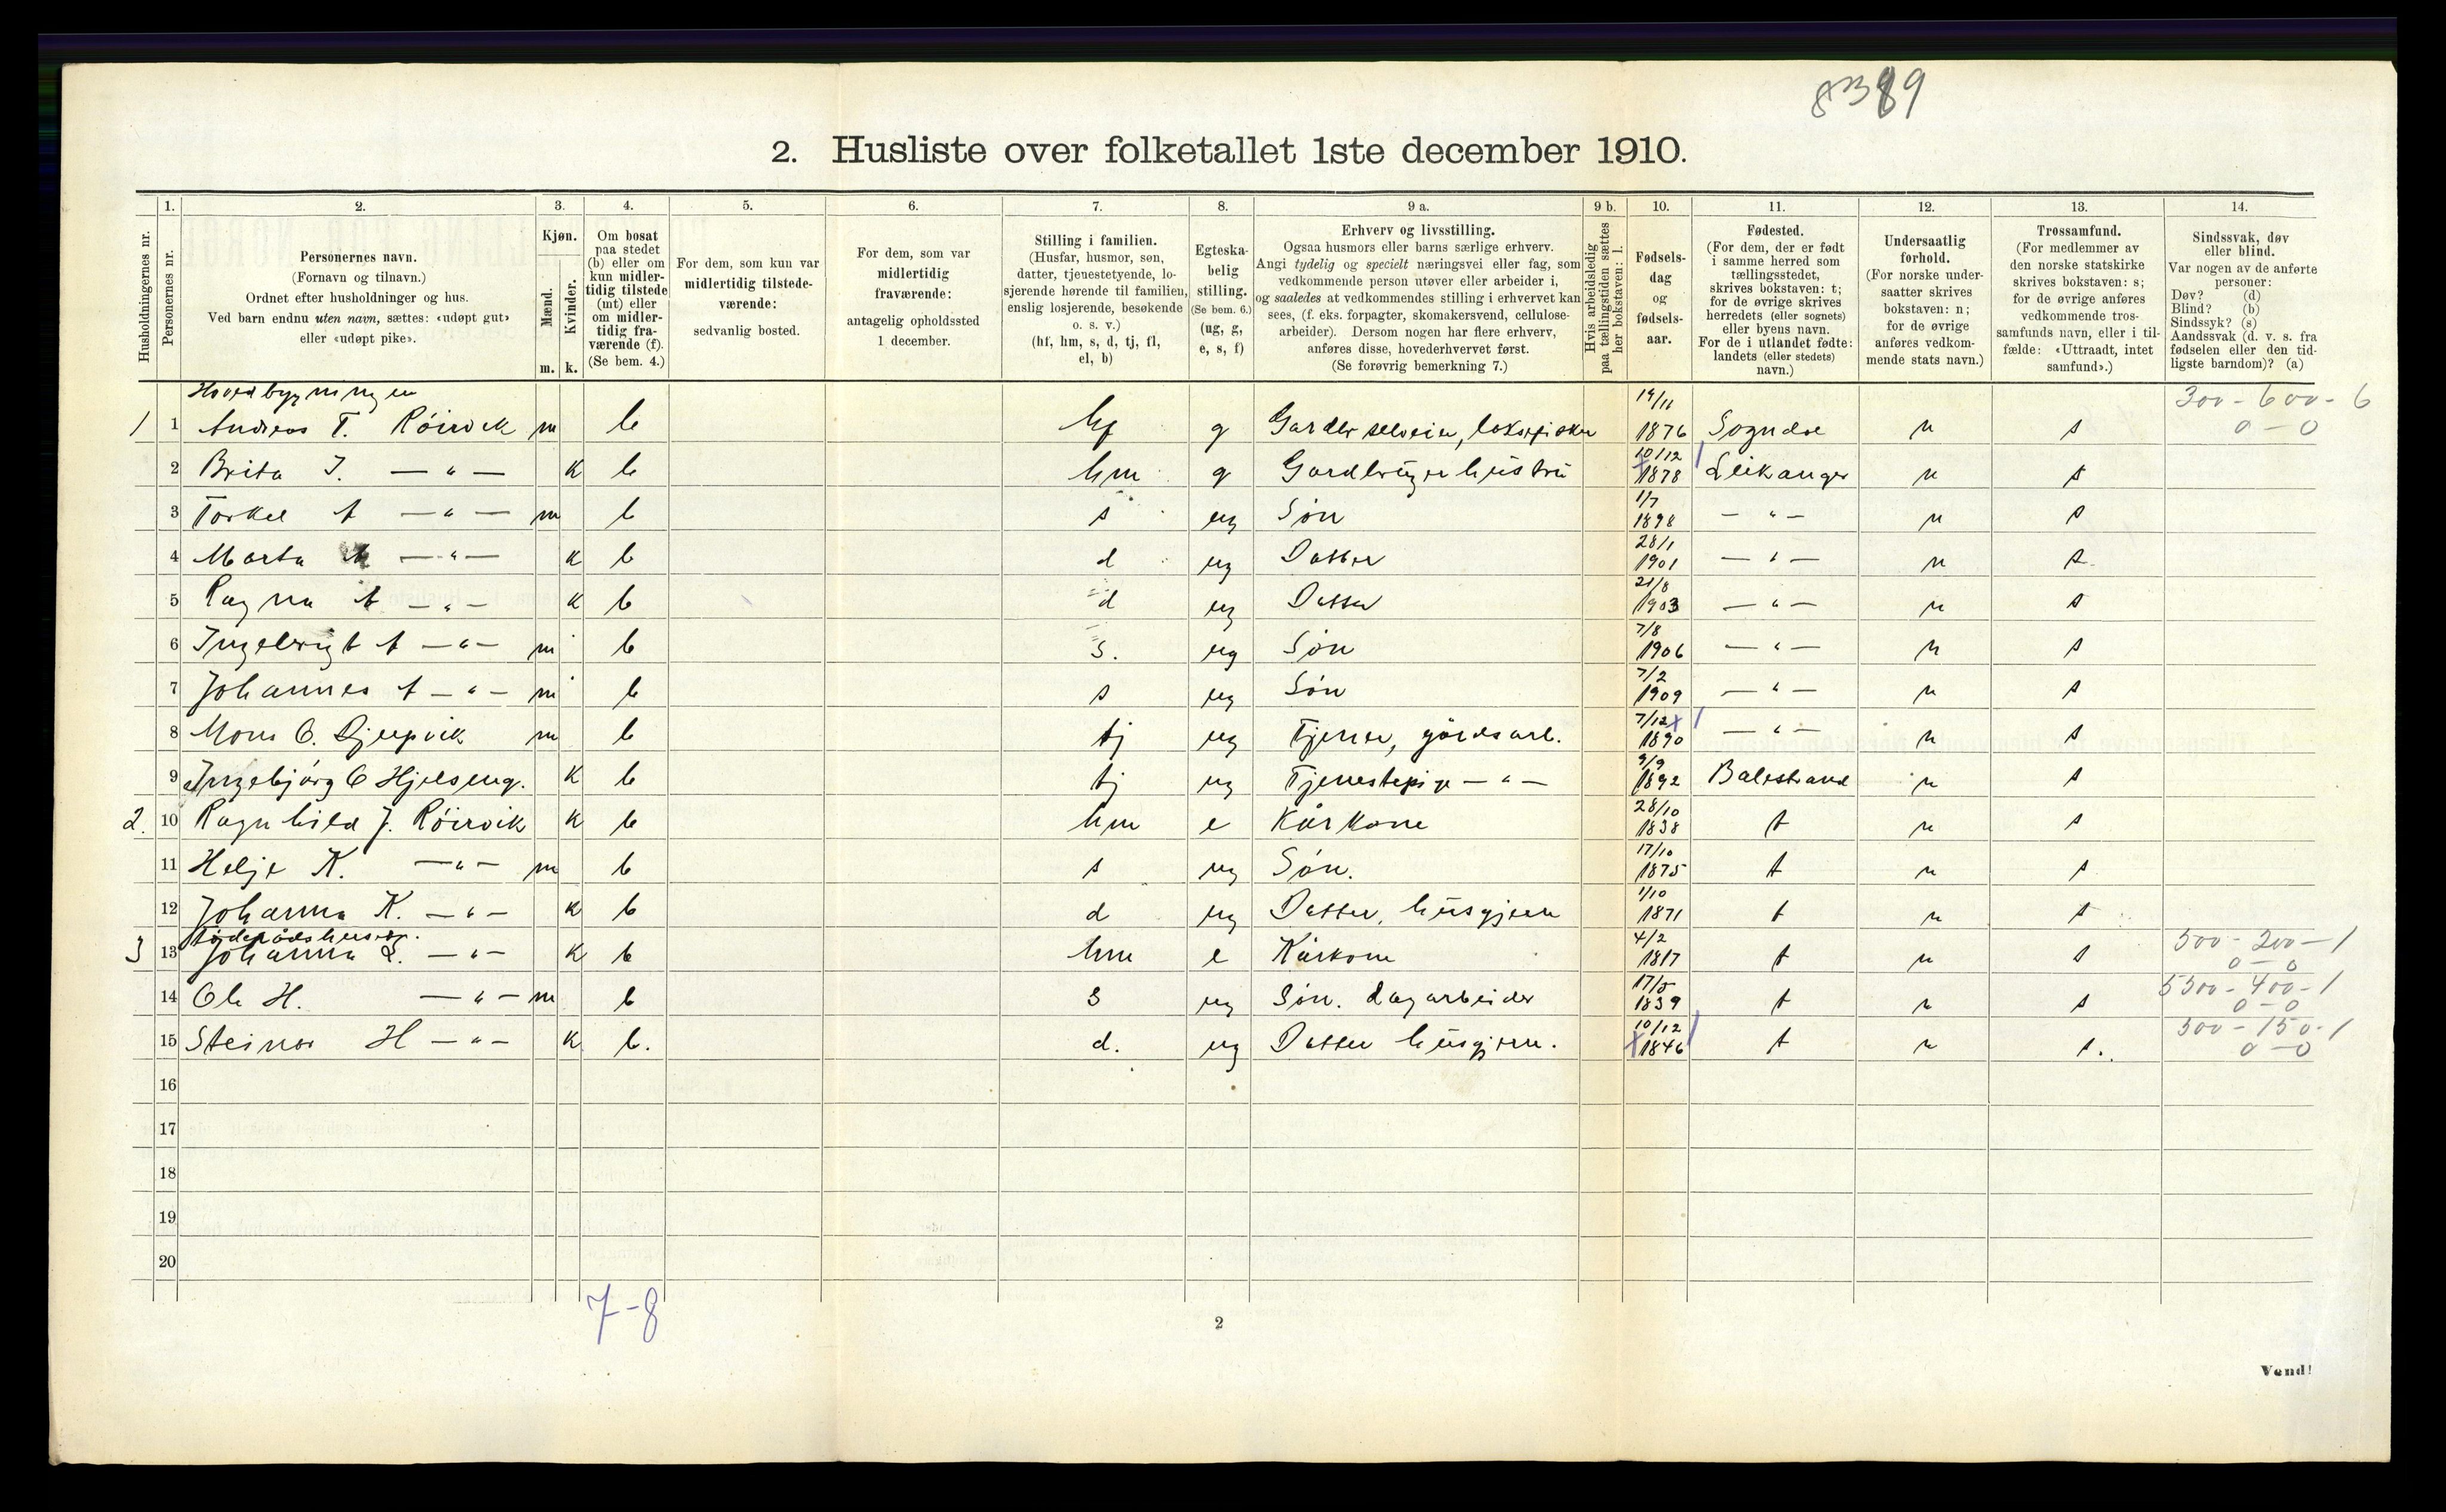 8389
2. Husliste over folketallet 1ste december 1910.
Husholdningernes nr.
1.
Personernes nr.
2.
Personernes navn.
(Fornavn og tilnavn.)
Ordnet efter husholdninger og hus.
Ved barn endnu uten navn, sættes: «udøpt gut»
eller «udøpt pike».
3.
Kjøn.
Mænd.
Kvinder.
m. k.
4.
Om bosat
paa stedet
(b) eller om
kun midler-
tidig tilstede
(mt) eller
om midler-
tidig fra-
værende (f).
(Se bem. 4.)
5.
For dem, som kun var
midlertidig tilstede-
værende:
sedvanlig bosted.
6.
For dem, som var
midlertidig
fraværende:
antagelig opholdssted
1 december.
7.
Stilling i familien.
(Husfar, husmor, søn,
datter, tjenestetyende, lo-
sjerende hørende til familien,
enslig losjerende, besøkende
o. s. v.)
(hf, hm, s, d, tj, fl,
el, b)
8.
Egteska-
belig
stilling.
(Se bem. 6.)
(ug, g,
e, s, f)
9 a.
Erhverv og livsstilling.
Ogsaa husmors eller barns særlige erhverv.
Angi tydelig og specielt næringsvei eller fag, som
vedkommende person utøver eller arbeider i,
og saaledes at vedkommendes stilling i erhvervet kan
sees, (f. eks. forpagter, skomakersvend, cellulose-
arbeider). Dersom nogen har flere erhverv,
anføres disse, hovederhvervet først.
(Se forøvrig bemerkning 7.)
9 b.
Hvis arbeidsledig
paa tællingstiden sættes
her bokstaven: l.
10.
Fødsels-
dag
og
fødsels-
aar.
11.
Fødested.
(For dem, der er født
i samme herred som
tællingsstedet,
skrives bokstaven: t;
for de øvrige skrives
herredets (eller sognets)
eller byens navn.
For de i utlandet fødte:
landets (eller stedets)
navn.)
12.
Undersaatlig
forhold.
(For norske under-
saatter skrives
bokstaven: n;
for de øvrige
anføres vedkom-
mende stats navn.)
13.
Trossamfund.
(For medlemmer av
den norske statskirke
skrives bokstaven: s;
for de øvrige anføres
vedkommende tros-
samfunds navn, eller i til-
fælde: «Uttraadt, intet
samfund».)
14.
Sindssvak, døv
eller blind.
Var nogen av de anførte
personer:
Døv? (d)
Blind? (b)
Sindssyk? (s)
Aandssvak (d. v. s. fra
fødselen eller den tid-
ligste barndom)? (a)
Hovedbygningen
1 1 Andreas T. Röirvik m b hf g Gardbr selveier, laksefisker 19/11 1876 Sogndal n s 300-600-6 0-0
2 Brita I. — " — k b hm g Gardbrugerhustru 10/12 1878 Leikanger n s
3 Torkel A — " — m b s ug Sön 1/7 1898 — " — n s
4 Marta A — " — k b d ug Datter 28/1 1901 — " — n s
5 Ragna A — " — k b d ug Datter 21/8 1903 — " — n s
6 Ingebrigt A — " — m b s. ug Sön 7/8 1906 — " — n s
7 Johannes A — " — m b s ug Sön 7/2 1909 — " — n s
8 Mons O. Djupvik m b tj ug Tjener, gårdsarb. 7/12 1890 — " — n s
9 Ingebjörg O Hjelseng. k b tj ug Tjenestepige — " — 9/9 1892 Balestrand n s
2. 10 Ragnhild J. Röirvik k b hm e Kårkone 28/10 1838 t n s
11 Helje K. — " — m b s ug Sön. 17/10 1875 t n s
12 Johanna K. — " — k b d ug Datter, husgjern 1/10 1871 t n s
3 13 Johanna L. — " — k b hm e Kårkone 4/2 1817 t n s 500-200-1 0-0
14 Ole H. — " — m b s ug Sön. dagarbeider 17/5 1839 t n s 5300-400-1 0-0
15 Steinor H — " — k b. d. ug Datter husgjern. 10/12 1846 t n s. 300-150-1 0-0
16
17
18
19
20
7-8
2
Vend!